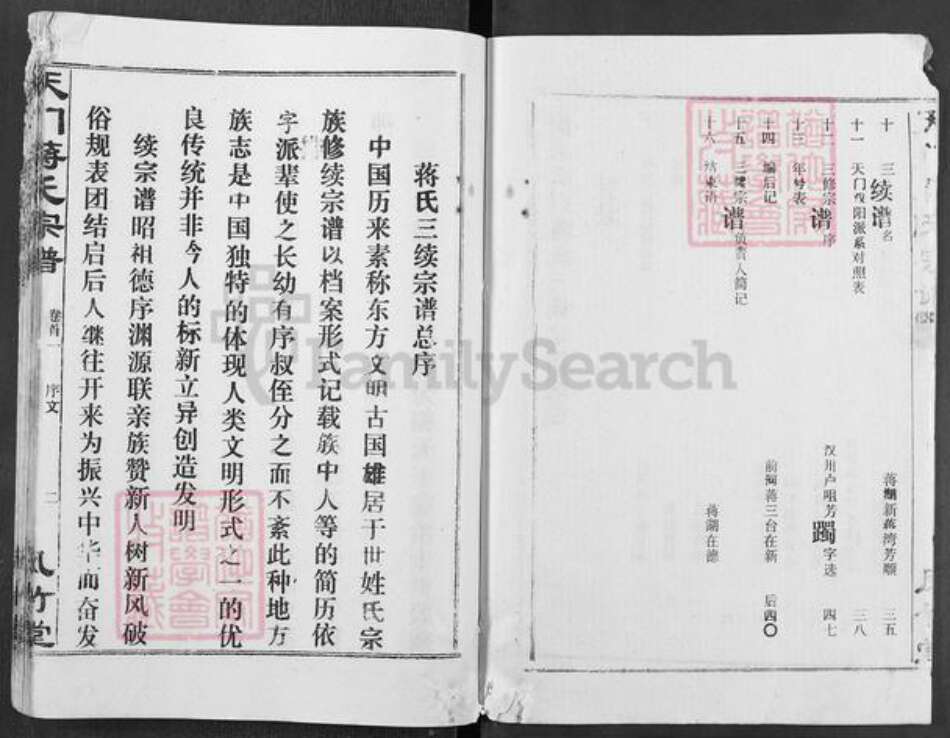 十 三续谱名 蒋湖新蒋湾芳顺 三五
十一 天门沔阳派系对照表 三八
十二 三修宗谱序 汉川卢咀芳躅字选 四七
十三 年号表
十四 编后记 前河蒋三台在新 后四〇
十五 三续宗谱负责人简记
十六 结束语 蒋湖在德
蒋氏三续宗谱总序
中国历来素称东方文明古国雄居于世姓氏宗
族修续宗谱以档案形式记载族中人等的简历依
字派辈使之长幼有序叔侄分之而不紊此种地方
族志是中国独特的体现人类文明形式之一的优
良传统并非今人的标新立异创造发明
续宗谱昭祖德序渊源联亲族赞新人树新风破
俗规表团结启后人继往开来为振兴中华而奋发
天门蒋氏宗谱 卷首一 序文 二 风竹堂
FamilySearch